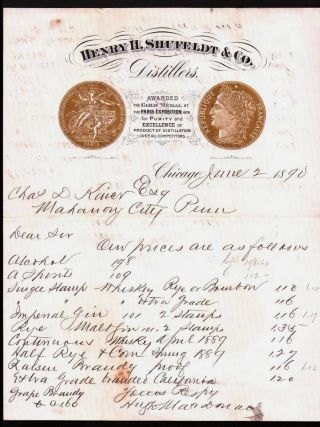 HENRY H. SHUFELDT & CO.
Distillers.
AWARDED
THE GOLD MEDAL AT
THE PARIS EXPOSITION 1878
for PURITY and
EXCELLENCE OF
PRODUCT OF DISTILLATION
OVER ALL COMPETITORS.
REPUBLIQUE FRANCAISE
Chicago, June 2 1890
Chas D. Kaier Esq
Mahanoy City Penn
Dear Sir
Our prices are as follows
Alcohol 198
A Spirits 109
Single Stamp Whiskey Rye or Bourbon 110
" " " Extra Grade 116
Imperial Gin 101 2 Stamps 116
Rye Malt Gin 101. 2 Stamps 135
Continuous Whiskey April 1889 116
Half Rye & Corn Spring 1889 127
Raisin Brandy proof 116
Extra Grade branded California 120
Grape Brandy Yours Respy
Hugh Macdonald